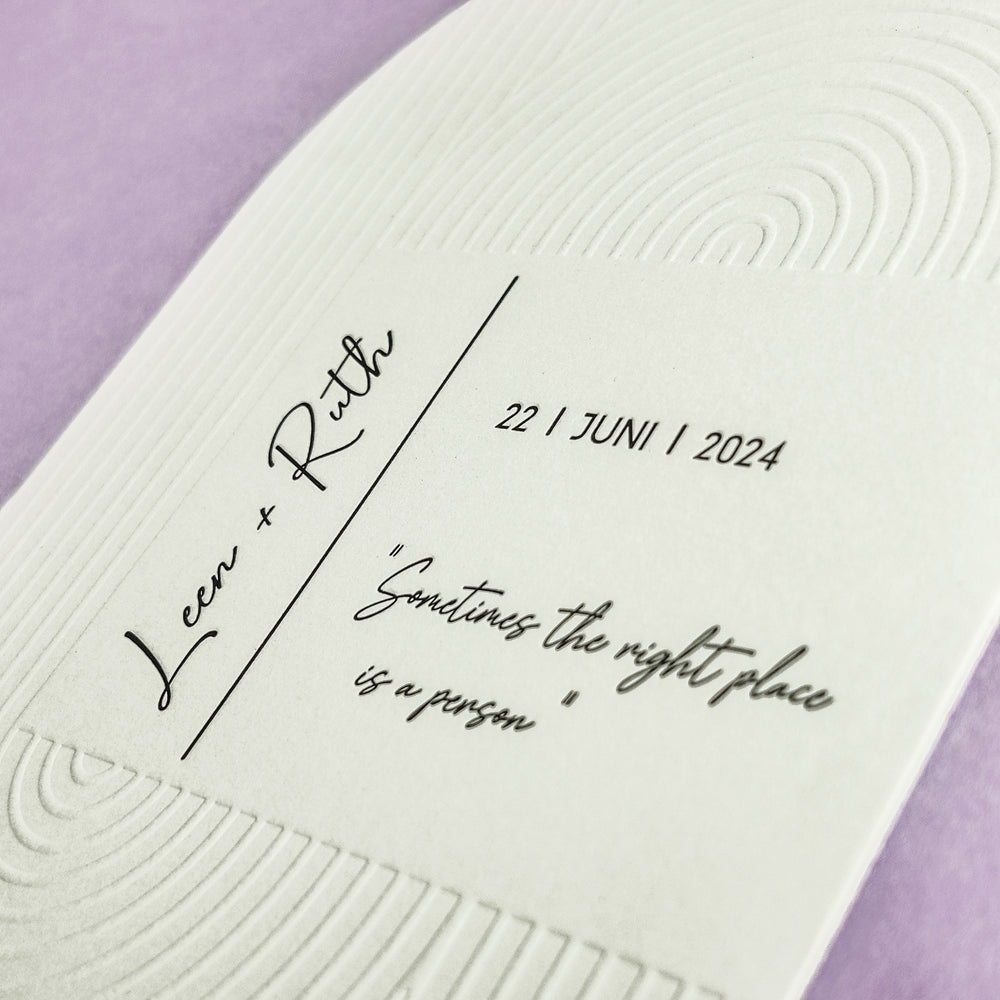 Leen + Ruth
22 | JUNI | 2024
"Sometimes the right place
is a person"